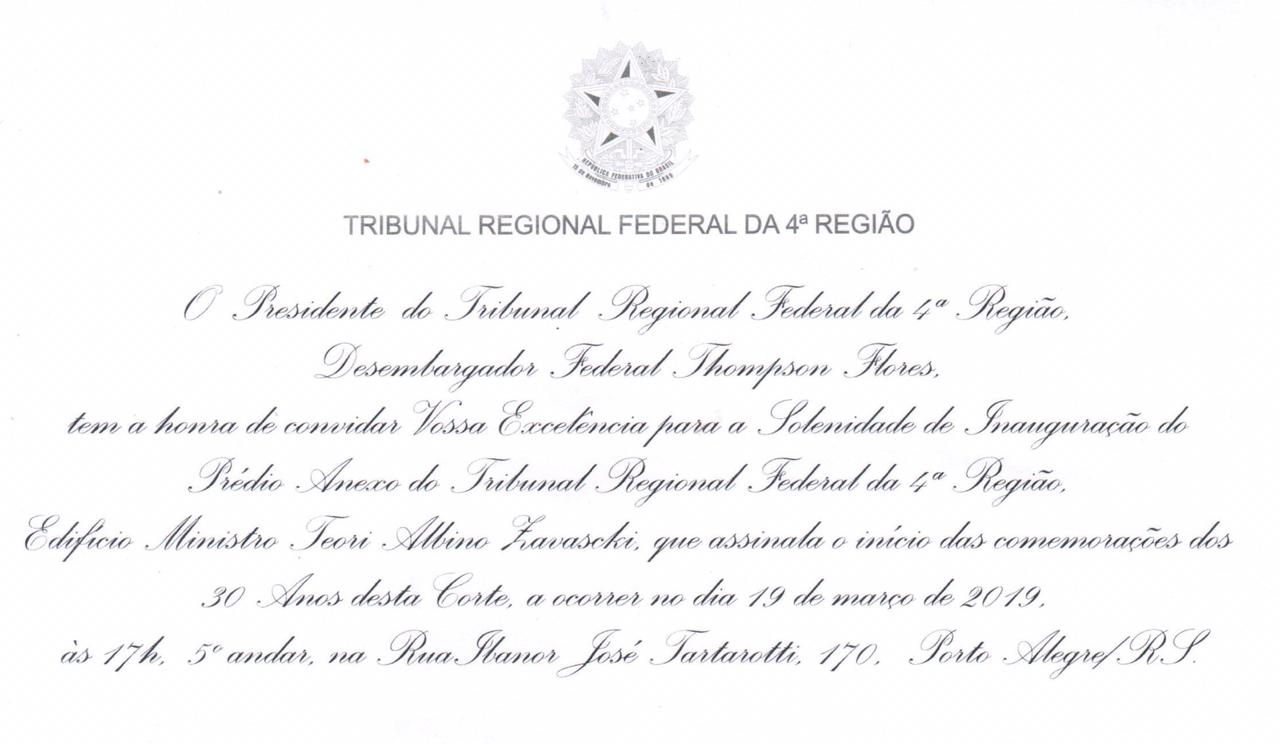 REPÚBLICA FEDERATIVA DO BRASIL
15 de Novembro de 1889
TRIBUNAL REGIONAL FEDERAL DA 4ª REGIÃO
O Presidente do Tribunal Regional Federal da 4ª Região,
Desembargador Federal Thompson Flores,
tem a honra de convidar Vossa Excelência para a Solenidade de Inauguração do
Prédio Anexo do Tribunal Regional Federal da 4ª Região,
Edifício Ministro Teori Albino Zavascki, que assinala o início das comemorações dos
30 Anos desta Corte, a ocorrer no dia 19 de março de 2019,
às 17h, 5º andar, na Rua Ibanor José Tartarotti, 170, Porto Alegre/RS.